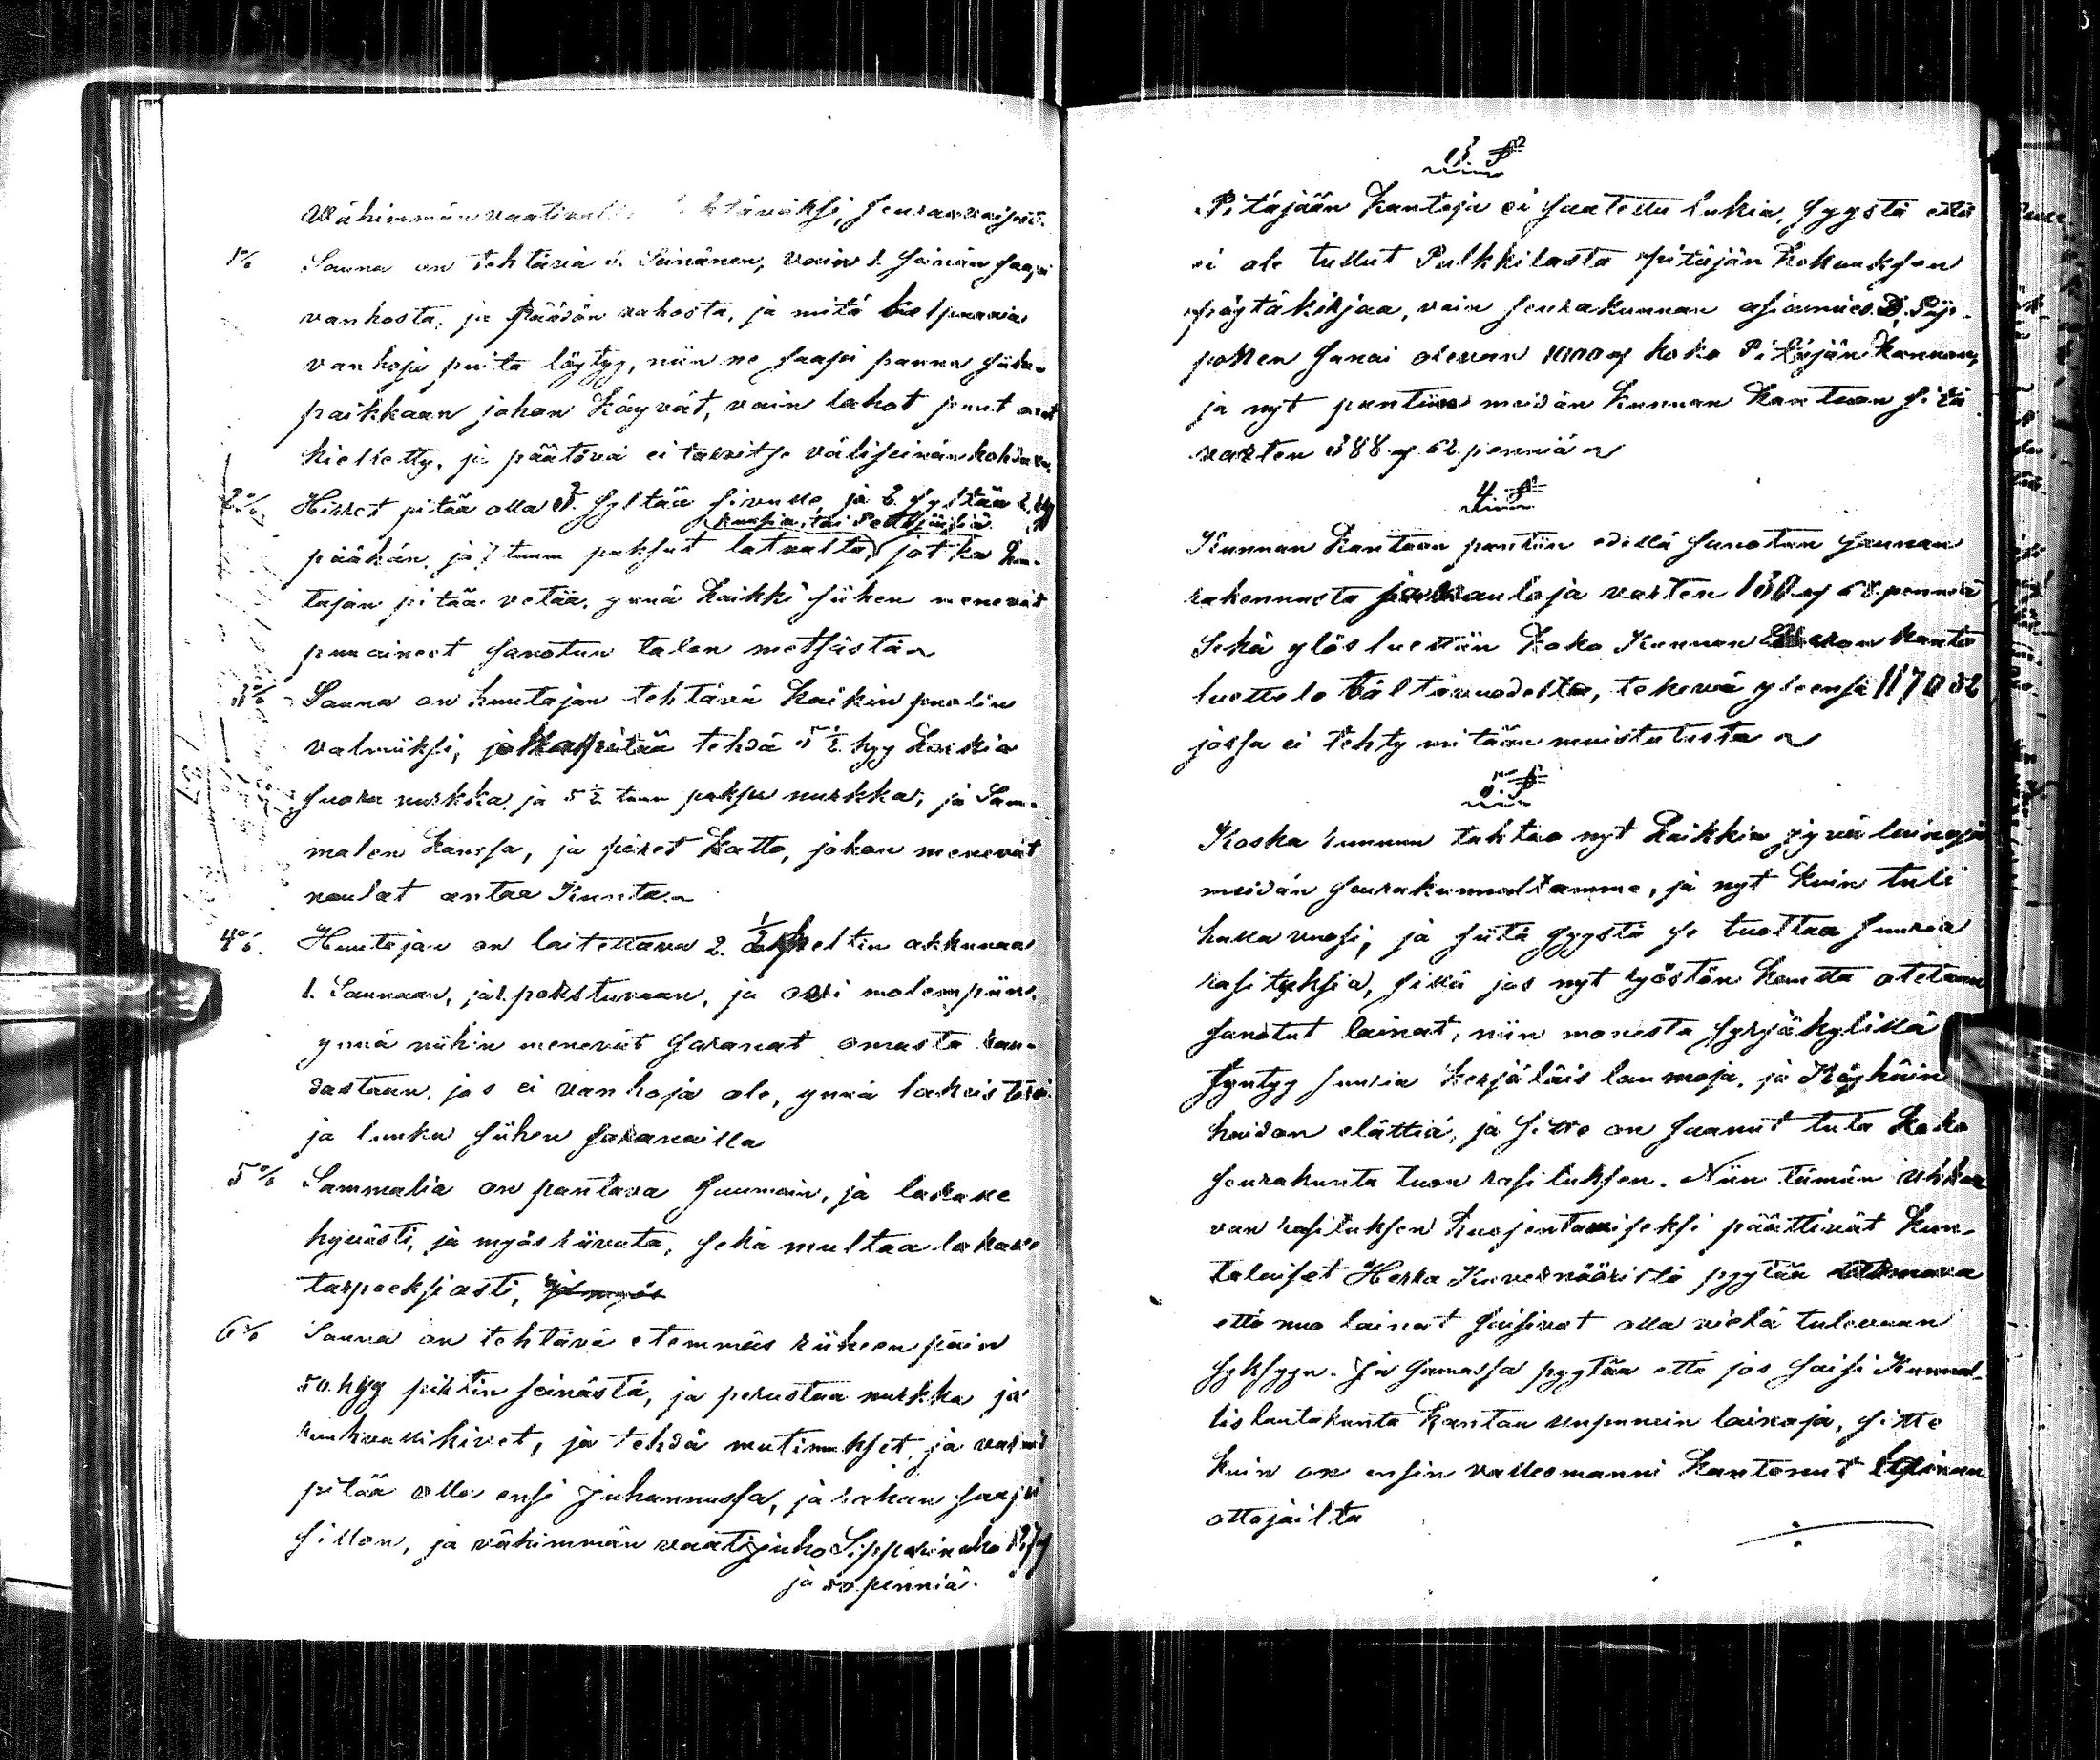 Vähimmän vaativalle tehtäväksi, seuraavaisesti.
1o/o Sauna on tehtävä 5. Seinänen, vain 1. seinän saapi
vanhosta, ja päädön vahosta, ja mitä kelpaavia
vanhoja puita löytyy, niin ne saapi panna siihen
paikkaan johon käyvät, vain lahot puut ovat
kielletty, ja päätövä ei tarvitse väliseinän kohdaan
2o/o Hirret pitää olla 3. syltää sivulle, ja 2. syltää
kuusia, tai Pettäjäisiä
päähän, ja 7 tuum paksut latvalta, jotka huu-
tajan pitää vetää, ynnä kaikki siihen menevät
puuaineet sanotun talon metsästä
3o/o Sauna on huutajan tehtävä kaikin puolin
valmiiksi, joka pitää tehdä 5 1/2 kyy korkia
suora nurkka, ja 5 1/2 tuum paksu nurkka, ja Sam-
malen kanssa, ja päret katto, johon menevät
naulat antaa Kunta
4o/o. Huutajan on laitettava 2. 1/2 kehtin akkunaa
1. Saunaan, ja 1. porstuvaan, ja ovi molempiin,
ynnä niihin menevät saranat omasta rau-
dastaan, jos ei vanhoja ole, ynnä lakeistorvi
ja luuku siihen saranailla
5o/o Sammalia on pantava suumain, ja lakave
hyvästi, ja myös riivata, sekä multaa lakave
tarpeeksiasti, ja myös
6o/o Sauna on tehtävä etemmäs riiheen päin
50. kyy. pirtin seinästä, ja perustaa nurkka ja
ruuhvallikivet, ja tehdä mutimukset, ja valmis
pitää olla ensi Juhannussa, ja rahan saapi
sillon, ja vähimmän vaati Juho Sipparinaho
ja 50. penniä.
3 §
Pitäjään kantoja ei saatettu lukia, syystä että
ei ole tullut Pulkkilasta pitäjän kokouksen
pöytäkirjaa, vain seurakunnan asiamies D. Pip-
ponen sanoi olevan 1000 mk koko Pitäjän kannon,
ja nyt pantiin meidän kunnan kantoon sitä
varten 388 mk 62. penniä
4 §
Kunnan kantoon pantiin edellä sanotun saunan
rakennusta ja nauloja varten 130 mk 68. penniä
Sekä ylös luettiin koko Kunnan kanto
luettelo tältävuodelta, tekevä yleensä 1170 52
jossa ei tehty mitään muistutusta
5. §
Koska kunnan tahtoo nyt kaikkia jyvä lainoja
meidän seurakunnaltamme, ja nyt kuin tuli
halla vuosi, ja siitä syystä se tuottaa suuria
rasituksia, sillä jos nyt ryöstön kautta otetaan
sanotut lainat, niin monesta syrjäkylillä
syntyy suuria kerjäläis laumoja, ja Köyhäin
hoidon elättiä, ja sitte on saanut tuta koko
seurakunta tuon rasituksen. Niin tämän uhkaa
van rasituksen huojentamiseksi päättivät kun-
talaiset Herra Kuvernööristä pyytää
että nuo lainat saisivat olla vielä tulevaan
syksyyn. Ja samassa pyytää että jos saisi Kunnal-
lis lautakunta kantaa viipuneiu lainoja, sitte
kuin on ensin vallesmanni kantonut lainan
ottajailta